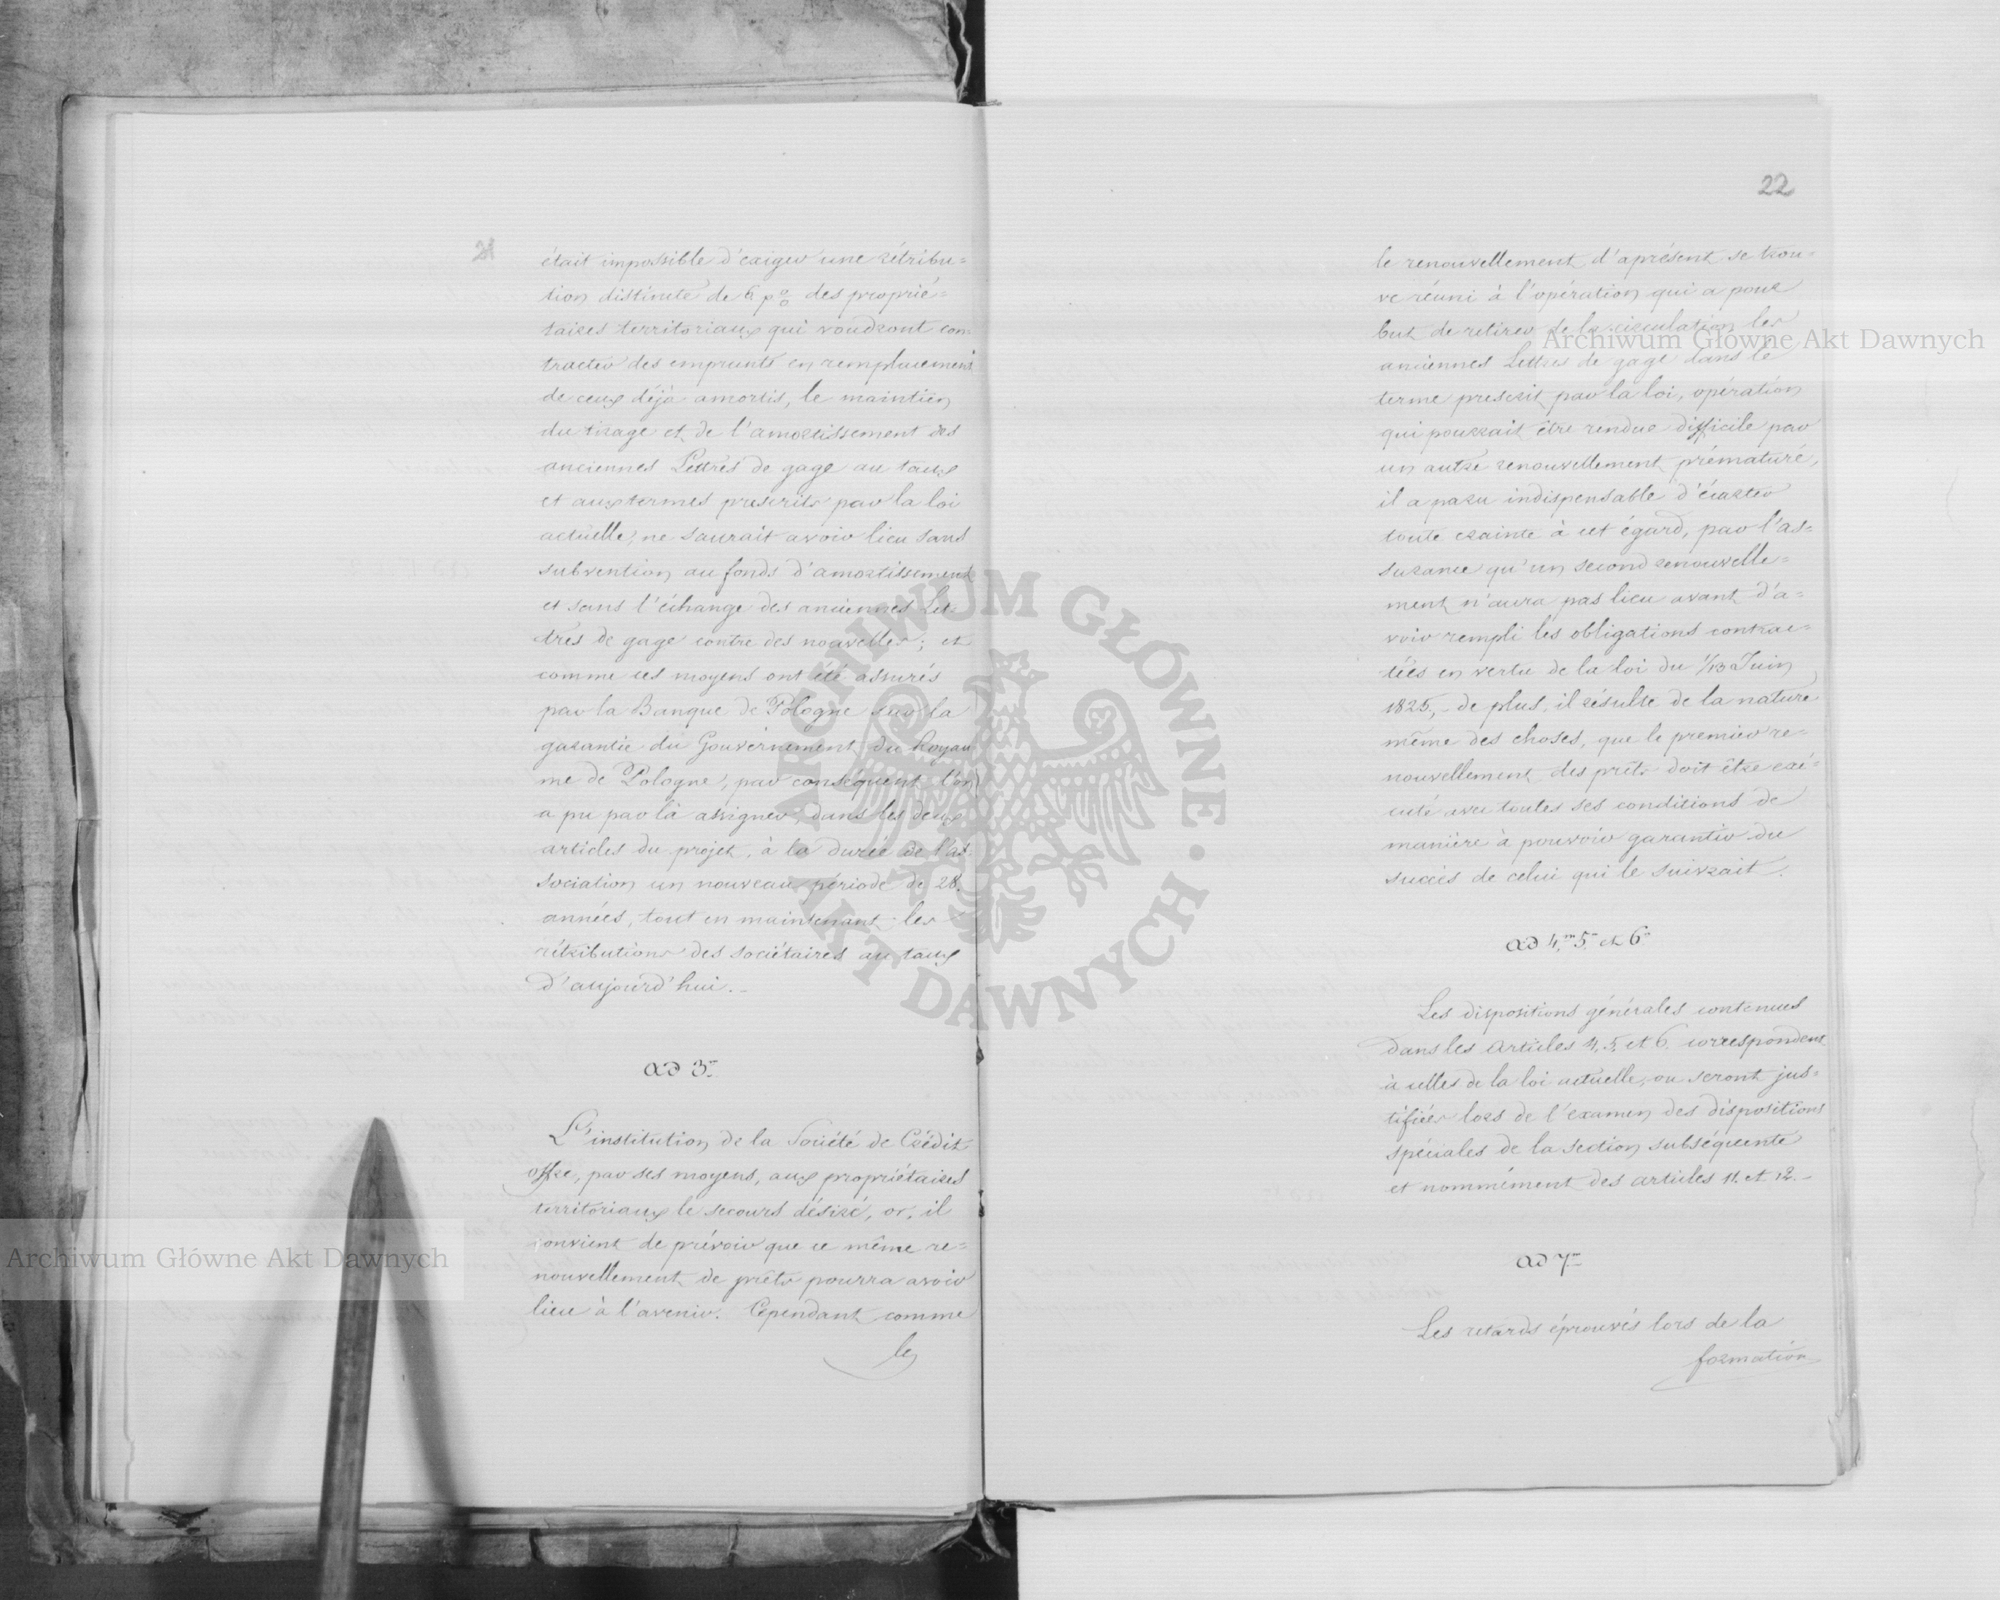 21
était impossible d'exiger une rétribu=
tion distincte de 6 p % des proprié=
taires territoriaux qui voudront con=
tracter des emprunts en remplacement
de ceux déjà amortis, le maintien
du tirage et de l'amortissement des
anciennes Lettres de gage au taux
et aux termes prescrits par la loi
actuelle, ne saurait avoir lieu sans
subvention au fonds d'amortissement
et sans l'échange des anciennes Let=
tres de gage contre des nouvelles; et
comme ces moyens ont été assurés
par la Banque de Pologne sur la
garantie du Gouvernement du Royau
me de Pologne, par conséquent l'on
a pu par là assigner, dans les deux
articles du projet, à la durée de l'as=
sociation un nouveau période de 28.
années, tout en maintenant les
rétributions des sociétaires au taux
d'aujourd'hui.-
ad 3.
L'institution de la Société de Crédit
offre, par ses moyens, aux propriétaires
territoriaux le secours désiré, or, il
convient de prévoir que ce même re=
nouvellement de prêts pourra avoir
lieu à l'avenir. Cependant comme
le
22
le renouvellement d'aprésent se trou=
ve réuni à l'opération qui a pour
but de retirer de la circulation les
anciennes Lettres de gage dans le
terme prescrit par la loi, opération
qui pourrait être rendue difficile par
un autre renouvellement prématuré,
il a paru indispensable d'écarter
toute crainte à cet égard, par l'as=
surance qu'un second renouvelle=
ment n'aura pas lieu avant d'a=
voir rempli les obligations contrac=
tées en vertu de la loi du 1/13 Juin
1825,- de plus, il résulte de la nature
même des choses, que le premier re=
nouvellement des prêts doit être exé=
cuté avec toutes ses conditions de
manière à pouvoir garantir du
succès de celui qui le suivrait.
ad 4.m 5. et 6.
Les dispositions générales contenues
dans les articles 4. 5. et 6. correspondent
à celles de la loi actuelle, ou seront jus=
tifiées lors de l'examen des dispositions
spéciales de la section subséquente
et nommément des articles 11. et 12.-
ad 7.m
Les retards éprouvés lors de la
formation
Archiwum Główne Akt Dawnych
Archiwum Główne Akt Dawnych
ARCHIWUM GŁÓWNE · AKT DAWNYCH ·